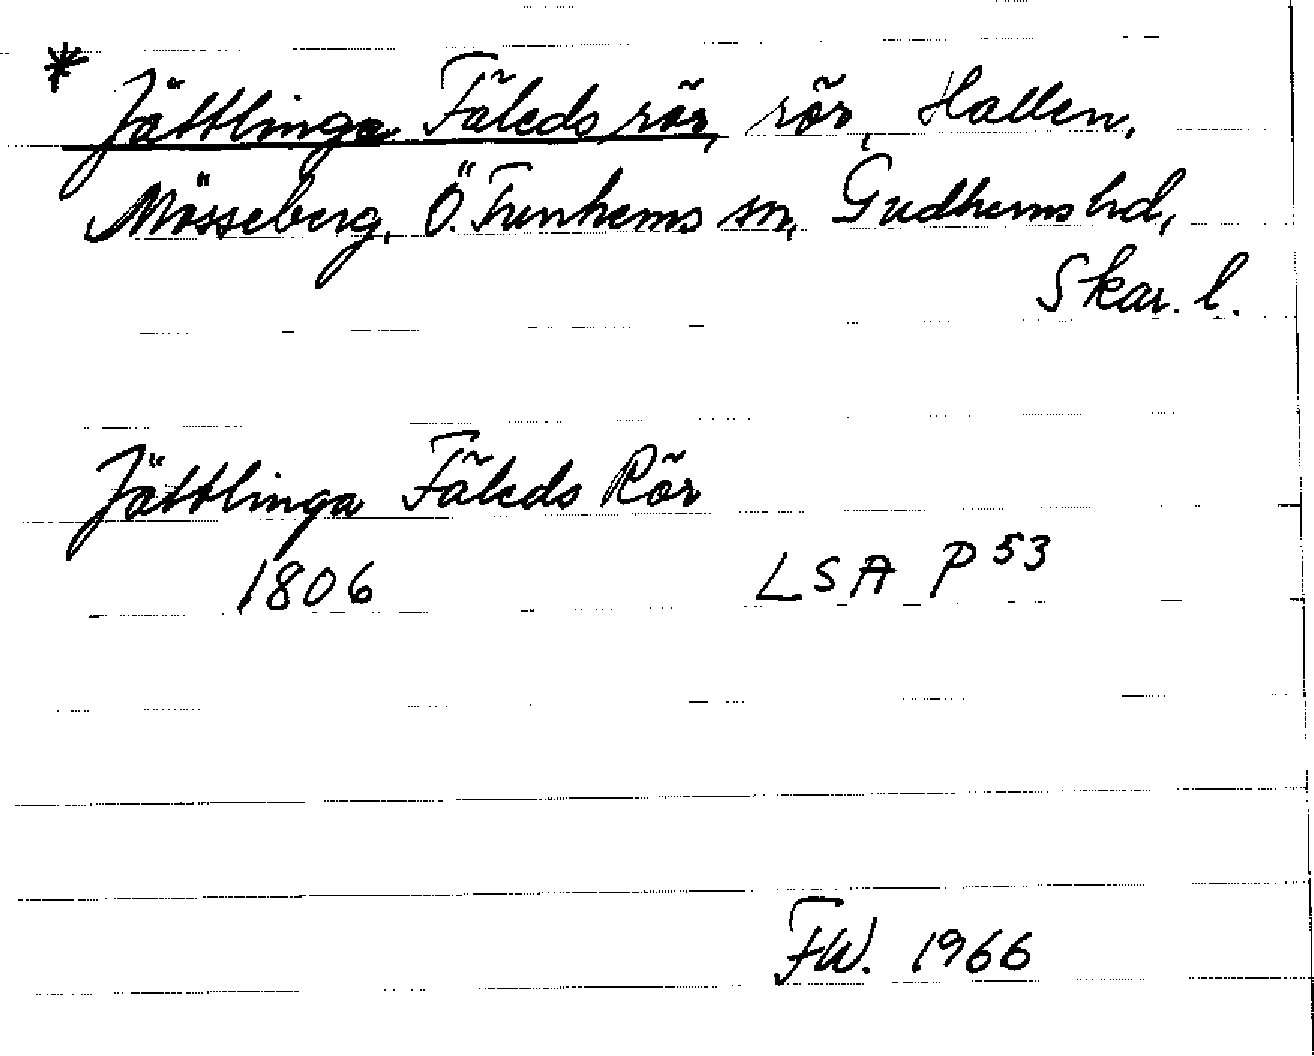 * Jättlinga Fäleds rör, rör, Hallen,
Mösseberg, Ö. Tunhems sn, Gudhems hd,
Skar. l.
Jättlinga Fäleds Rör
1806 LSA P 53
FW. 1966